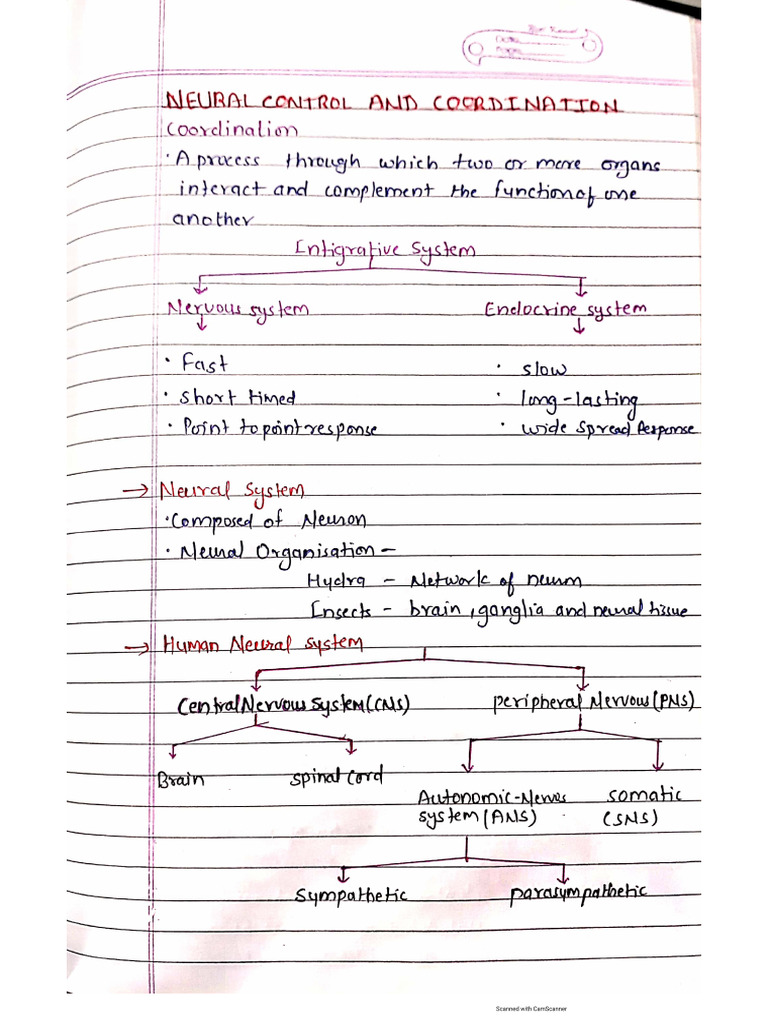 NEURAL CONTROL AND COORDINATION
Coordination
· A process through which two or more organs
interact and complement the function of one
another
Intigrative System
Nervous system Endocrine system
· Fast · slow
· Short timed · long-lasting
· Point to point response · wide spread Response
→ Neural System
· Composed of Neuron
· Neural Organisation –
Hydra – Network of neuron
Insects – brain, ganglia and neural tissue
→ Human Neural system
Central Nervous System (CNS) peripheral Nervous (PNS)
Brain Spinal Cord
Autonomic-Nerves somatic
system (ANS) (SNS)
Sympathetic parasympathetic
Scanned with CamScanner